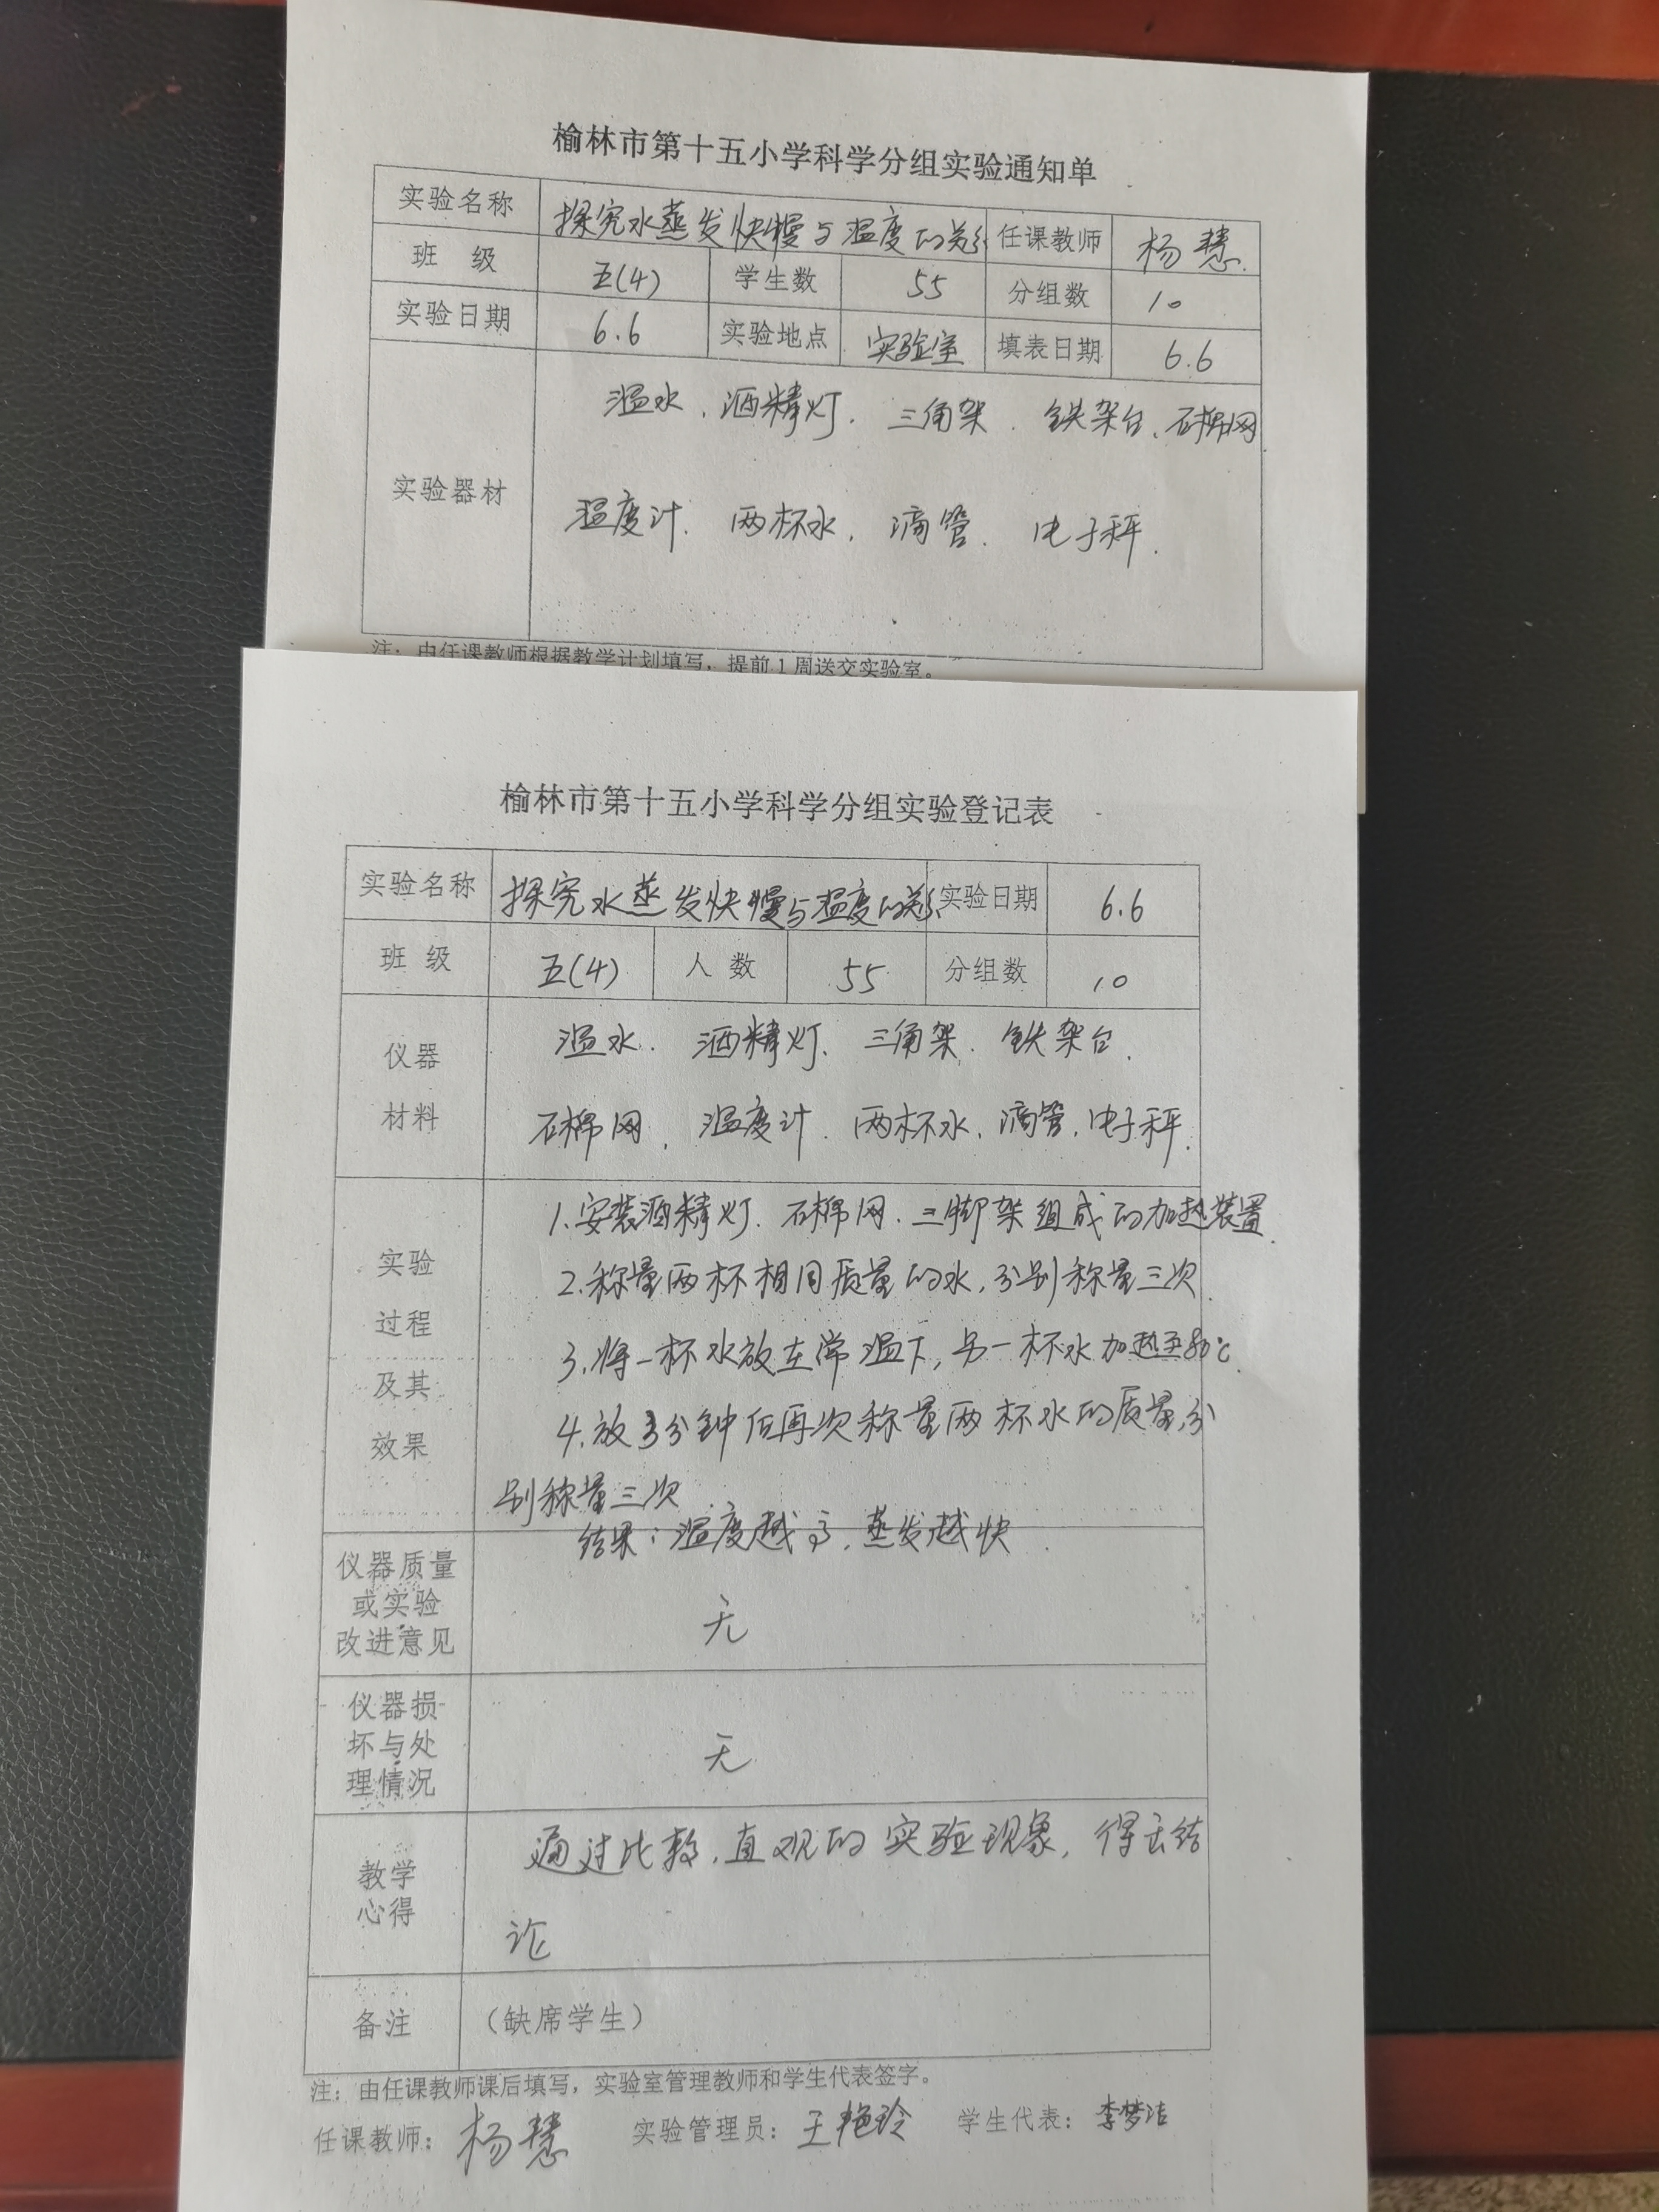 榆林市第十五小学科学分组实验通知单
实验名称 探究水蒸发快慢与温度的关系 任课教师 杨慧
班 级 五(4) 学生数 55 分组数 10
实验日期 6.6 实验地点 实验室 填表日期 6.6
温水、酒精灯、三角架、铁架台、石棉网
实验器材
温度计、两杯水、滴管、电子秤.
注：由任课教师根据教学计划填写，提前1周送交实验室。
榆林市第十五小学科学分组实验登记表
实验名称 探究水蒸发快慢与温度的关系 实验日期 6.6
班 级 五(4) 人 数 55 分组数 10
仪器 温水、酒精灯、三角架、铁架台、
材料 石棉网、温度计、两杯水、滴管、电子秤.
1.安装酒精灯、石棉网、三脚架组成的加热装置.
实验 2.称量两杯相同质量的水,分别称量三次.
过程
及其 3.将一杯水放在常温下,另一杯水加热至80℃.
效果 4.放3分钟后再次称量两杯水的质量,分
别称量三次
结果:温度越高,蒸发越快.
仪器质量
或实验 无
改进意见
仪器损
坏与处 无
理情况
教学 通过比较,直观的实验现象,得出结
心得 论
备注 （缺席学生）
注：由任课教师课后填写，实验室管理教师和学生代表签字。
任课教师：杨慧 实验管理员：王艳玲 学生代表：李梦洁